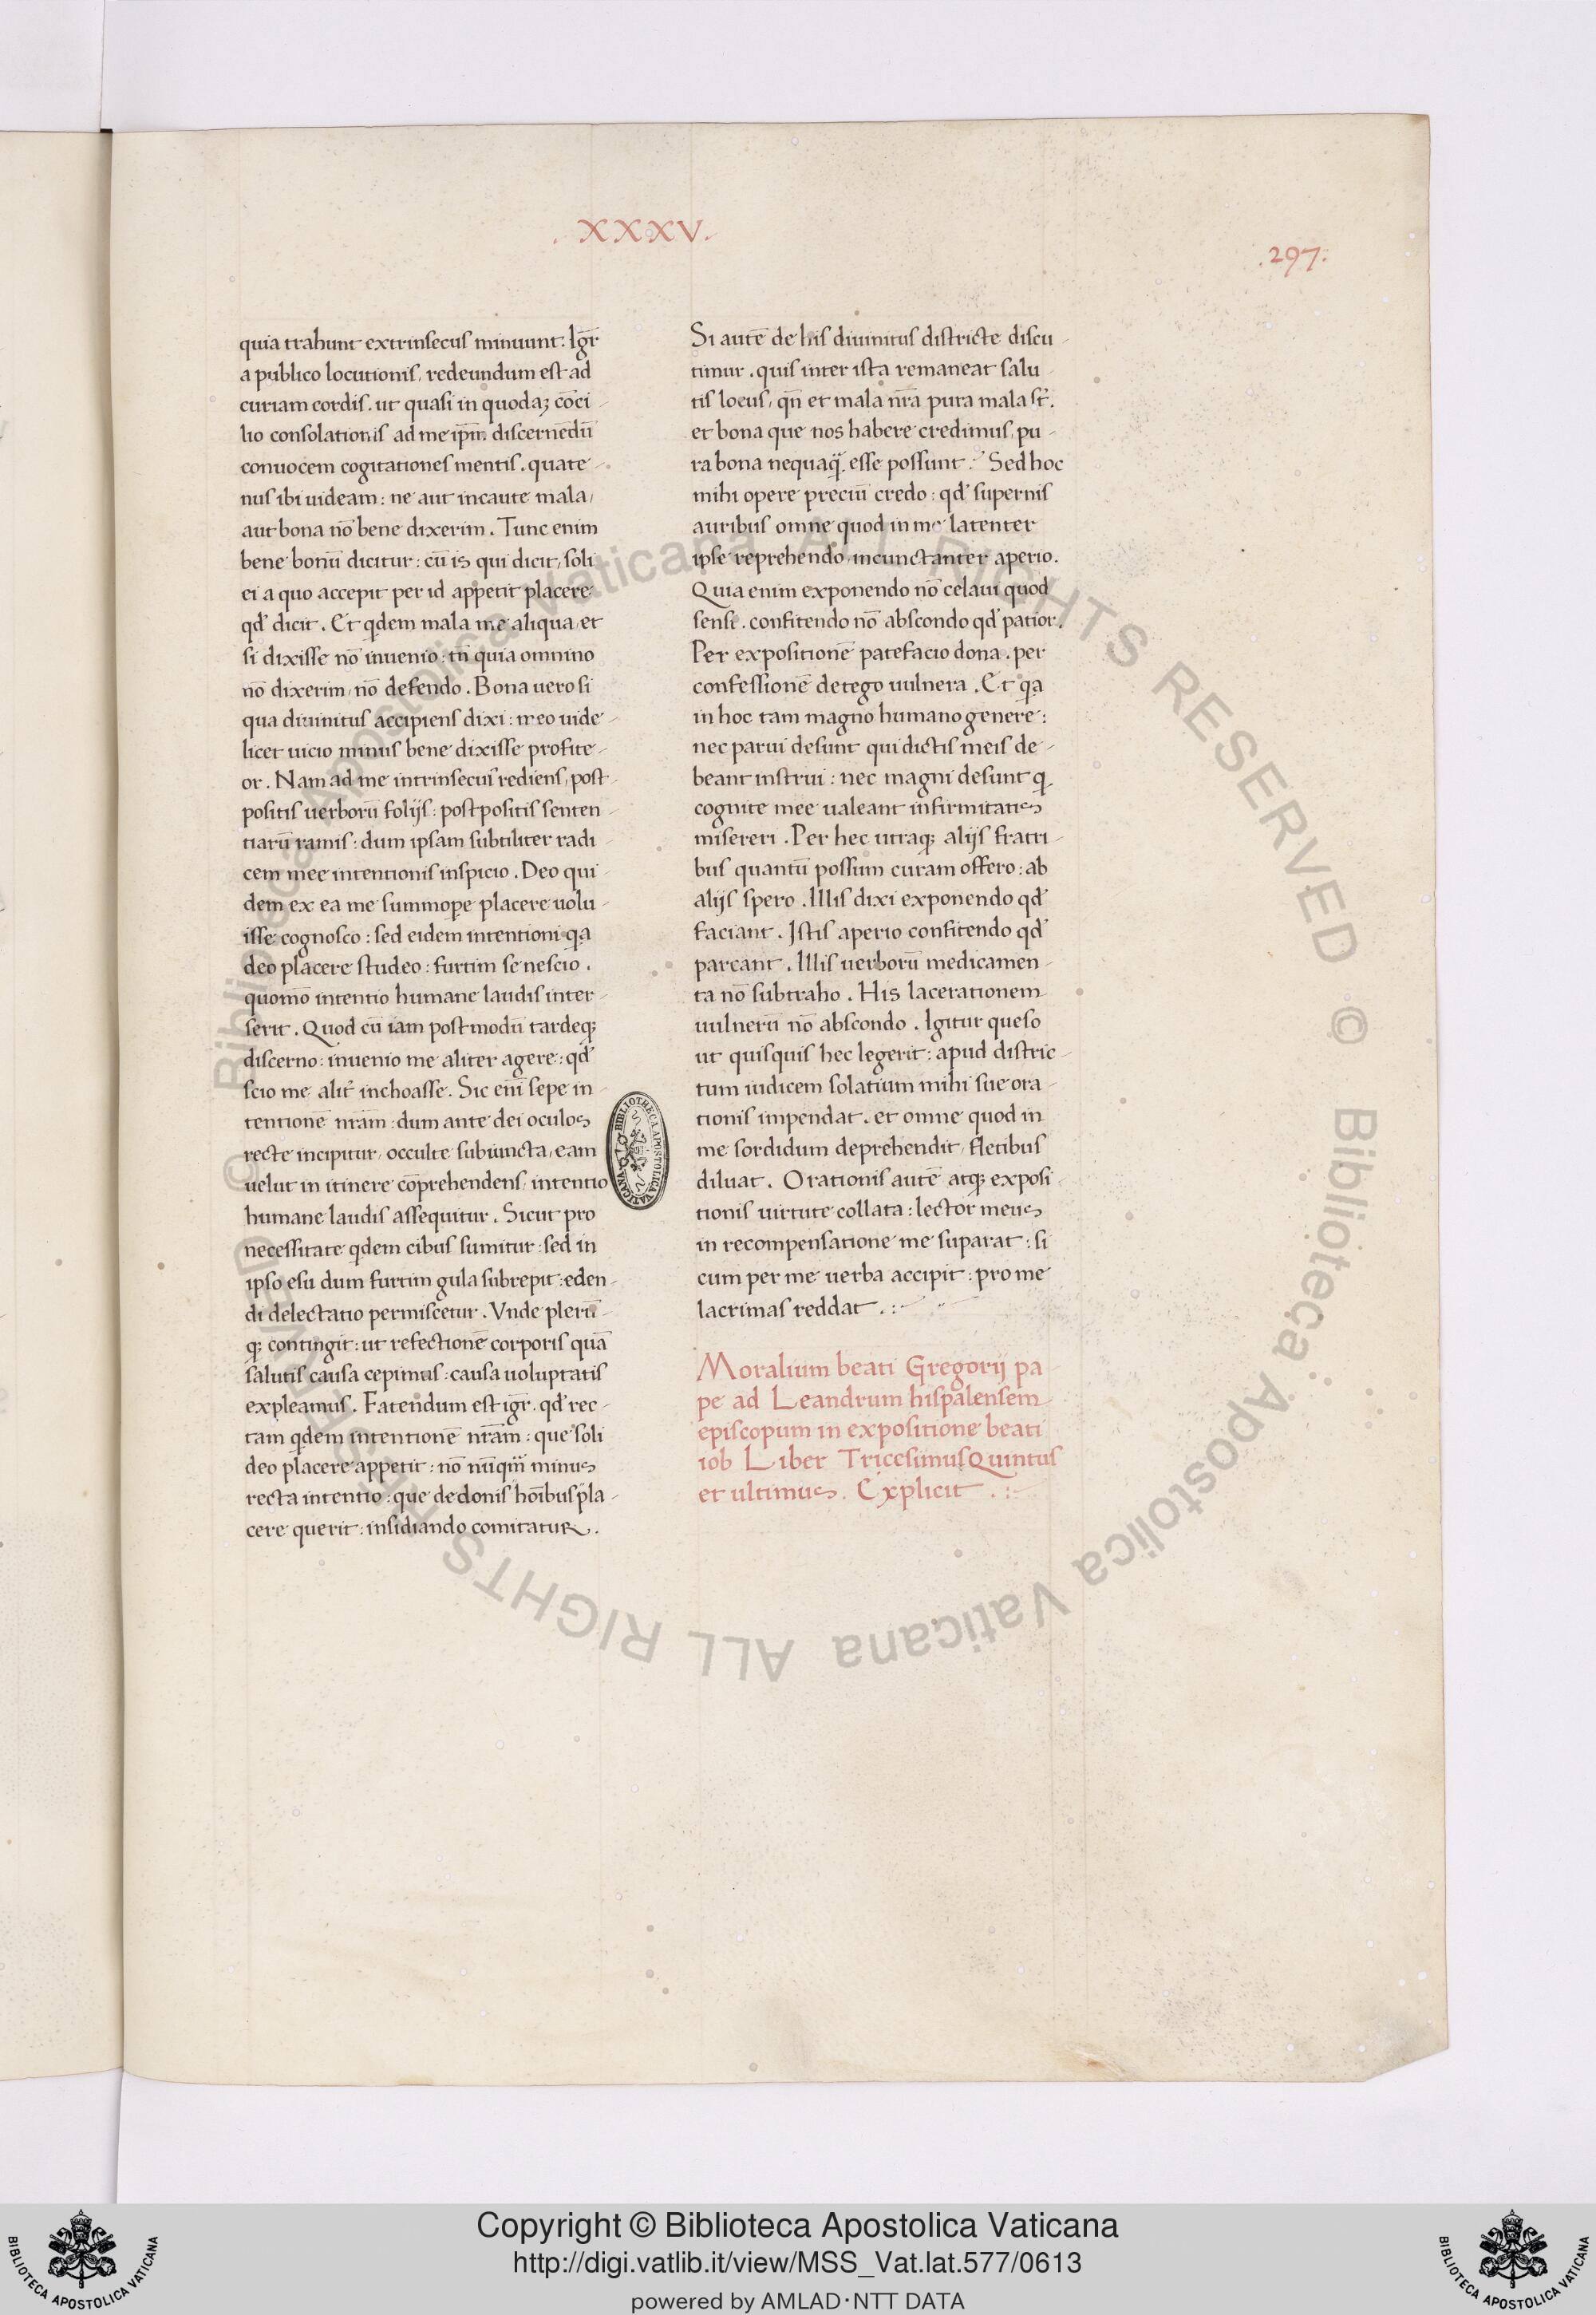 . XXXV.
.297.
quia trahunt extrinsecus minuunt. Igr̄
a publico locutionis, redeundum est ad
curiam cordis. ut quasi in quodaȝ cōci-
lio consolationis ad me ip̄m discernēdū
conuocem cogitationes mentis. quate-
nus ibi uideam: ne aut incaute mala,
aut bona nō bene dixerim. Tunc enim
bene bonū dicitur: cū is qui dicit, soli
ei a quo accepit per id appetit placere
qd̕ dicit. Et qdem mala me aliqua, et
si dixisse nō inuenio: tn̄ quia omnino
nō dixerim, nō defendo. Bona uero si
qua diuinitus accipiens dixi: meo uide-
licet uicio minus bene dixisse profite-
or. Nam ad me intrinsecus rediens, post-
positis uerborū folijs: postpositis senten-
tiarū ramis: dum ipsam subtiliter radi
cem mee intentionis inspicio. Deo qui-
dem ex ea me summoꝑe placere uolu-
isse cognosco: sed eidem intentioni qa
deo placere studeo: furtim se nescio.
quomō intentio humane laudis inter-
serit. Quod cū iam postmodū tardeqꝫ
discerno: inuenio me aliter agere: qd̕
scio me alit̕ inchoasse. Sic enī sepe in-
tentionē nr̄am: dum ante dei oculos
recte incipitur, occulte subiuncta, eam
uelut in itinere cōprehendens, intentio
humane laudis assequitur. Sicut pro
necessitate qdem cibus sumitur: sed in
ipso esu dum furtim gula subrepit: eden-
di delectatio permiscetur. Vnde plerū-
qꝫ contingit: ut refectionē corporis quā
salutis causa cepimus: causa uoluptatis
expleamus. Fatendum est igr̄. qd̕ rec-
tam qdem intentionē nr̄am: que soli
deo placere appetit: nō nūqm̄ minus
recta intentio: que de donis hoībus pla-
cere querit: insidiando comitatur.
Si autē de his diuinitus districte discu-
timur. quis inter ista remaneat salu-
tis locus, qn̄ et mala nr̄a pura mala st̕.
et bona que nos habere credimus, pu-
ra bona nequaq̄. esse possunt. Sed hoc
mihi opere preciū credo: qd̕ supernis
auribus omne quod in me latenter
ipse reprehendo, incunctanter aperio.
Quia enim exponendo nō celaui quod
sensi. confitendo nō abscondo qd̕ patior.
Per expositionē patefacio dona. per
confessionē detego uulnera. Et qa
in hoc tam magno humano genere:
nec parui desunt qui dictis meis de-
beant instrui: nec magni desunt q
cognite mee ualeant infirmitatis
misereri. Per hec utraqꝫ alijs fratri-
bus quantū possum curam offero: ab
alijs spero. Illis dixi exponendo qd̕
faciant. Istis aperio confitendo qd̕
parcant. Illis uerborū medicamen-
ta nō subtraho. His lacerationem
uulnerū nō abscondo. Igitur queso
ut quisquis hec legerit: apud distric-
tum iudicem solatium mihi sue ora-
tionis impendat. et omne quod in
me sordidum deprehendit, fletibus
diluat. Orationis autē atqꝫ exposi-
tionis uirtute collata: lector meus
in recompensatione me suꝑat: si
cum per me uerba accipit: pro me
lacrimas reddat.
Moralium beati Gregorij pa
pe ad Leandrum hispalensem
episcopum in expositione beati
iob Liber Tricesimus Quintus
et ultimus. Explicit.
BIBLIOTHECA APOSTOLICA VATICANA
© Biblioteca Apostolica Vaticana ALL RIGHTS RESERVED © Biblioteca Apostolica Vaticana ALL RIGHTS RESERVED
Copyright © Biblioteca Apostolica Vaticana
http://digi.vatlib.it/view/MSS_Vat.lat.577/0613
powered by AMLAD·NTT DATA
BIBLIOTECA APOSTOLICA VATICANA
BIBLIOTECA APOSTOLICA VATICANA